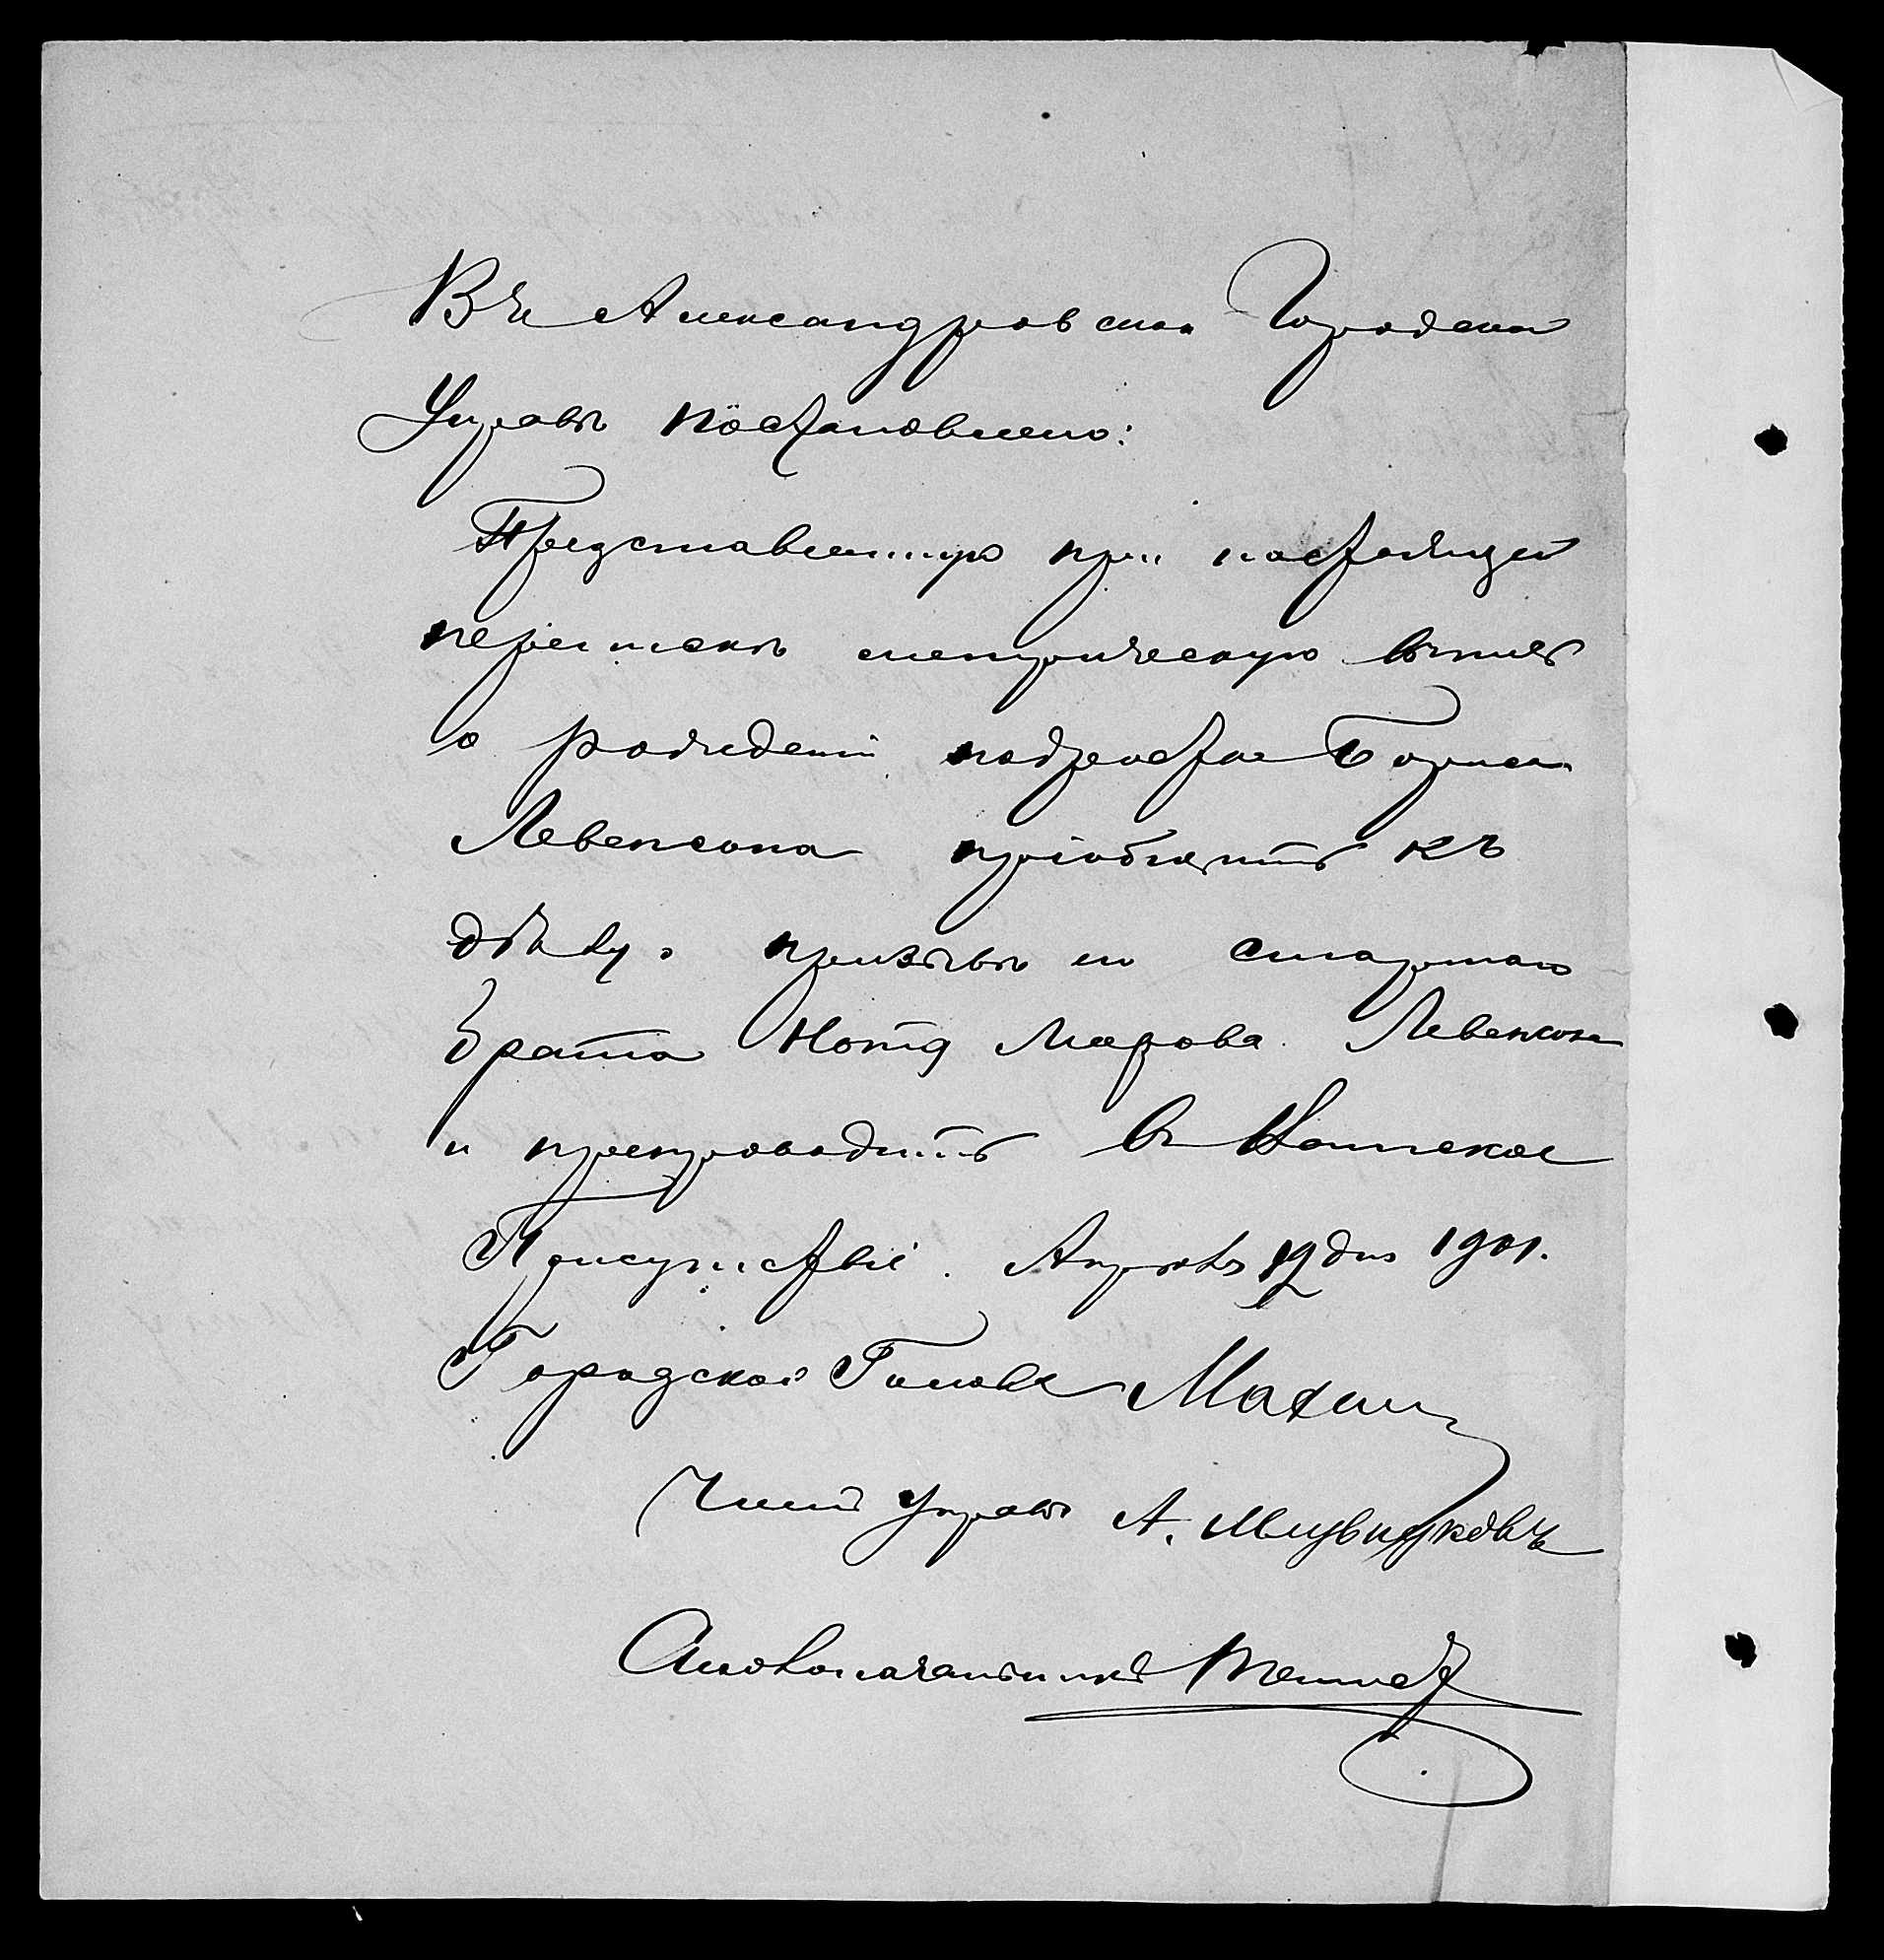 Въ Александровской Городской
Управѣ постановлено:
Представленную при настоящей
перепискѣ метрическую выпись
о рожденіи подростка Бориса
Левенсона пріобщить къ
дѣлу о призывѣ его старшаго
брата Нота Меерова Левенсона
и препроводить въ Воинское
Присутствіе. Апрѣля 19 дня 1901.
Городской Голова Махин
Членъ Управы А.
Столоначальникъ